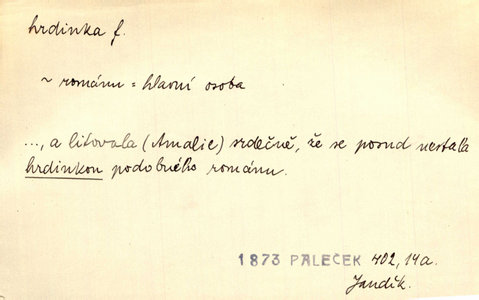 hrdinka f.
~ románu = hlavní osoba
..., a litovala (Amalie) srdečně, že se posud nestala
hrdinkou podobného románu.
1873 PALEČEK 402, 14a.
Jandík.